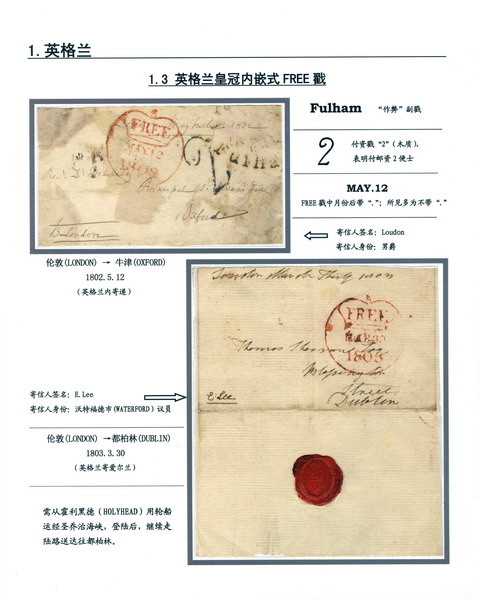 1.英格兰
1.3 英格兰皇冠内嵌式 FREE 戳
Fulham “作弊”副戳
2 付资戳“2”(木质)，
表明付邮资2便士
MAY.12
FREE 戳中月份后带“.”；所见多为不带“.”
寄信人签名：Loudon
寄信人身份：男爵
FREE
MAY 12
伦敦(LONDON) → 牛津(OXFORD)
1802.5.12
(英格兰内寄递)
FREE
MAR 30
1803
Street
Dublin
E Lee
寄信人签名：E.Lee
寄信人身份：沃特福德市(WATERFORD)议员
伦敦(LONDON) →都柏林(DUBLIN)
1803.3.30
(英格兰寄爱尔兰)
需从霍利黑德(HOLYHEAD)用轮船
运经圣乔治海峡，登陆后，继续走
陆路送达往都柏林。